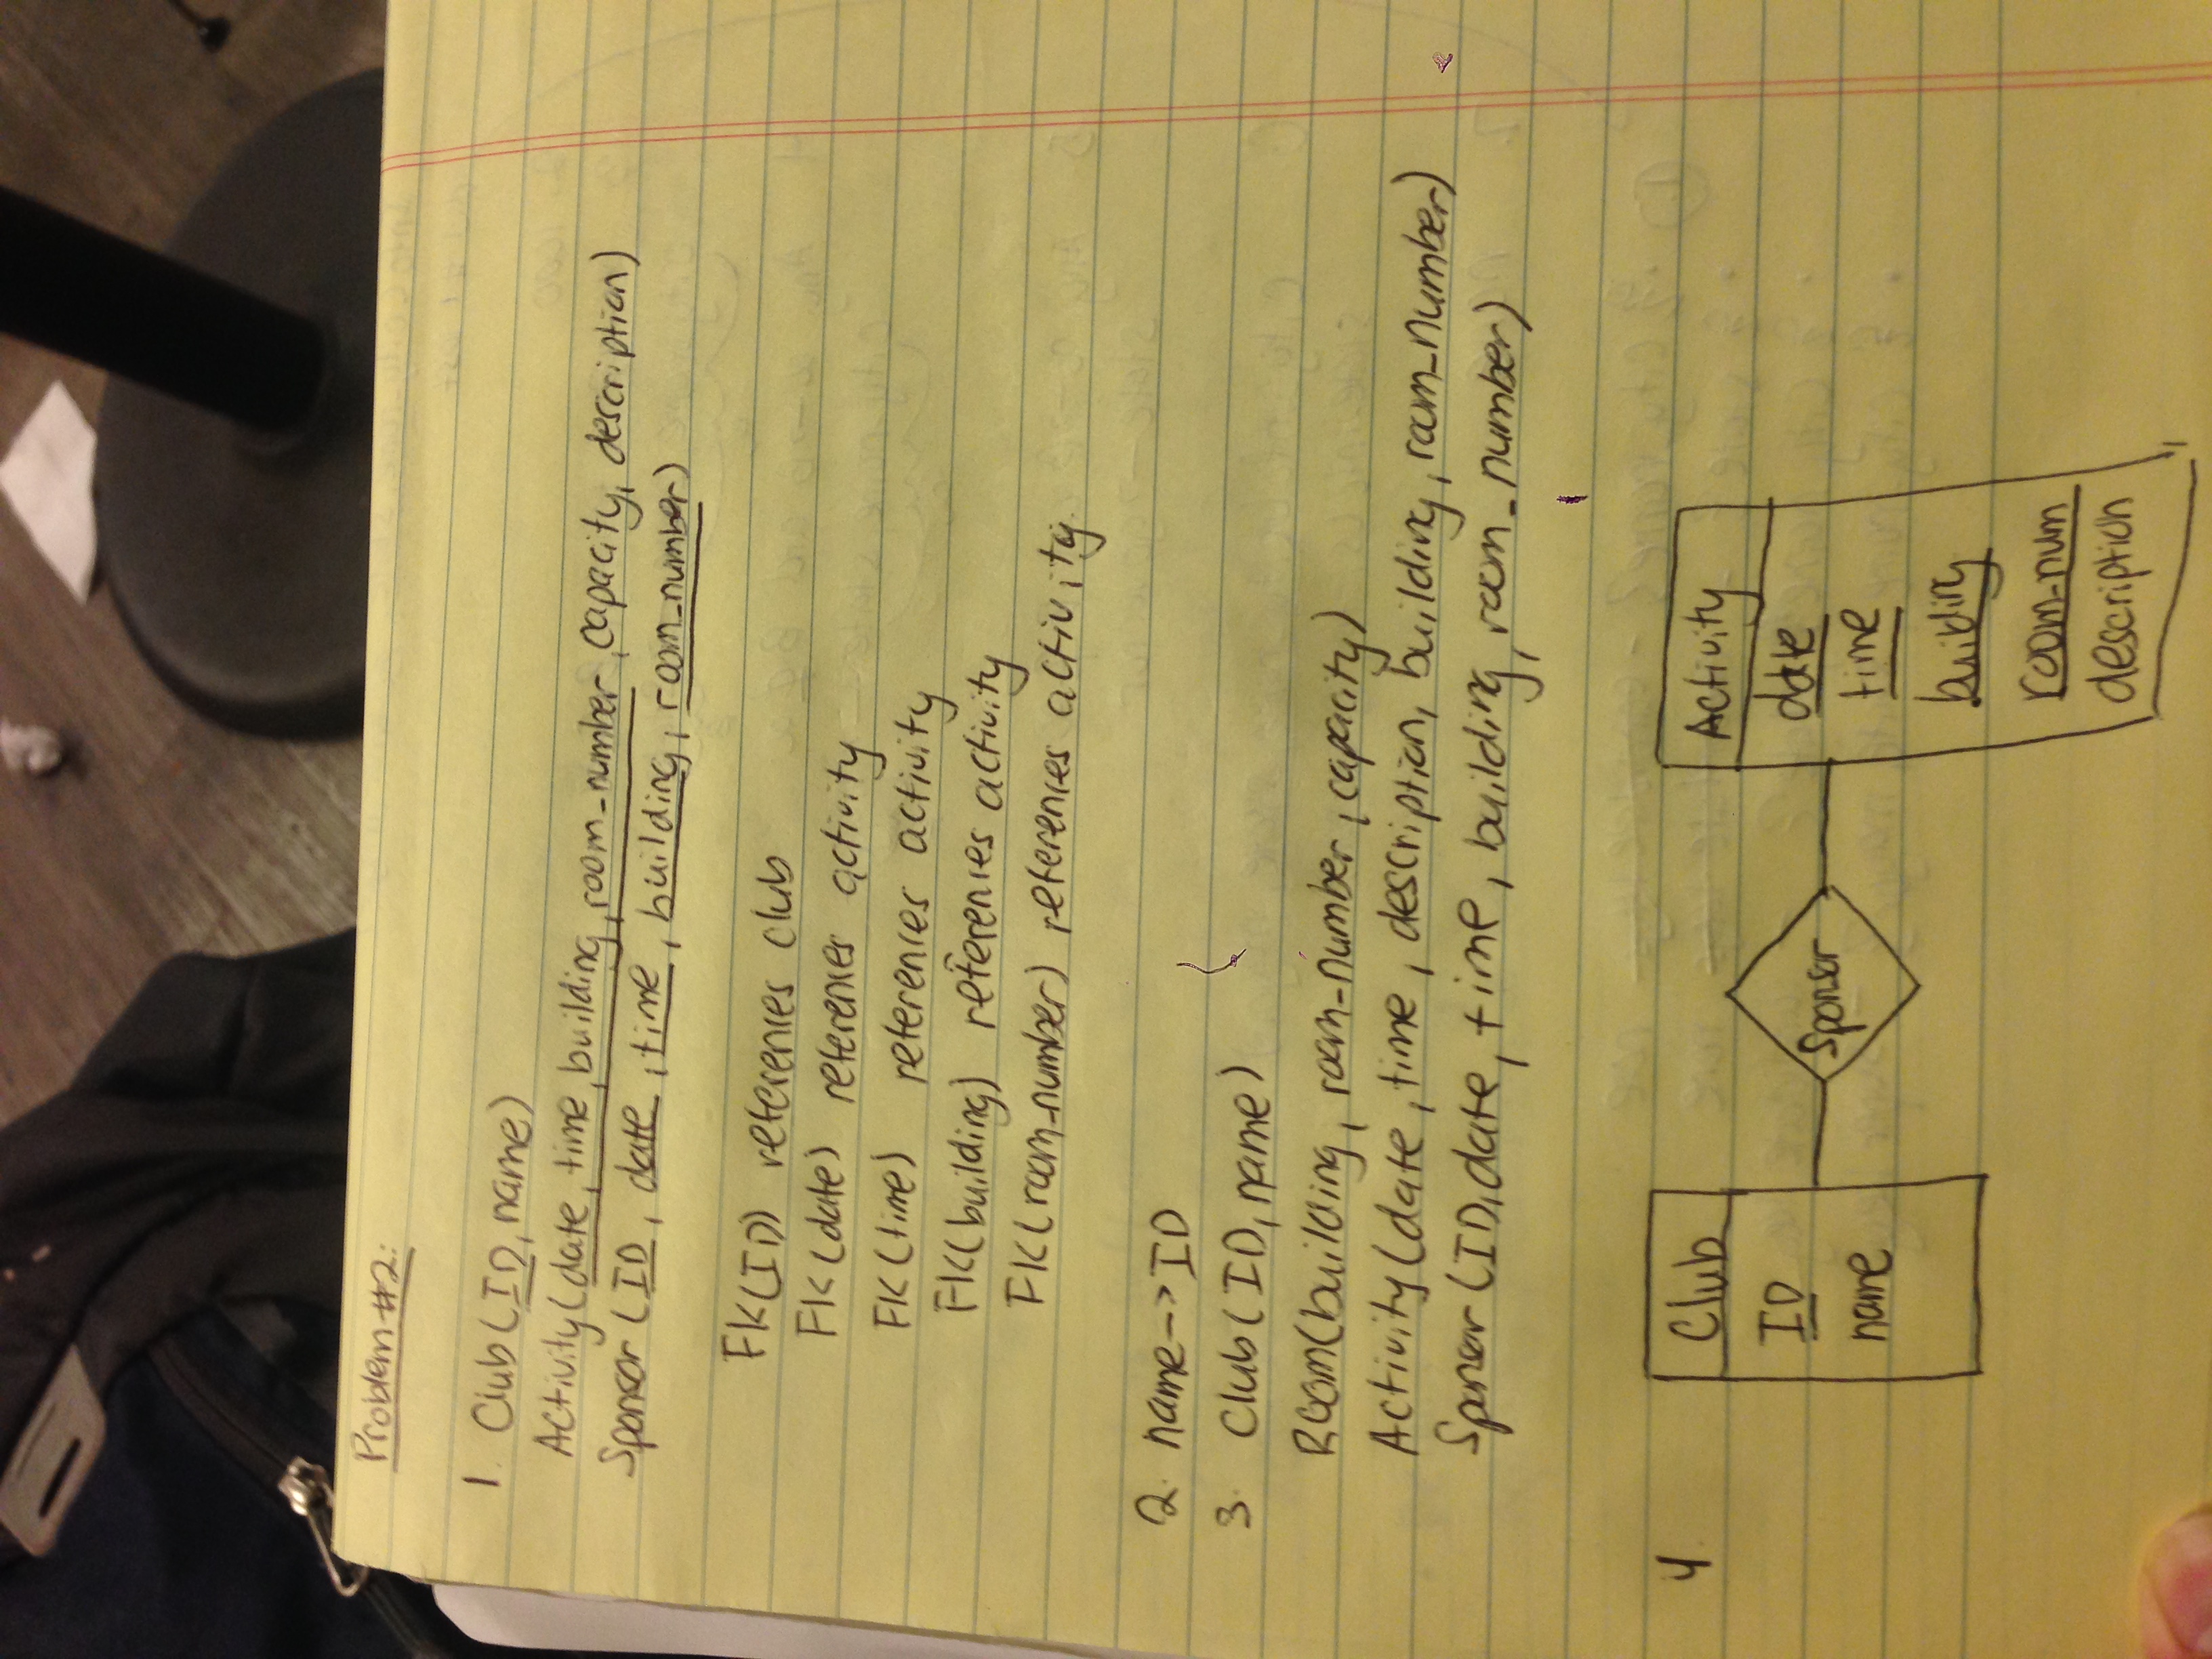 Problem #2:
1. Club(ID, name)
Activity(date, time, building, room_number, capacity, description)
Sponsor (ID, date, time, building, room_number)
FK(ID) references club
FK(date) references activity
FK(time) references activity
FK(building) references activity
FK(room_number) references activity.
2. name -> ID
3. Club(ID, name)
Room(building, room_number, capacity)
Activity(date, time, description, building, room_number)
Sponsor (ID, date, time, building, room_number)
4.
Club
ID
name
Sponsor
Activity
date
time
building
room_num
description